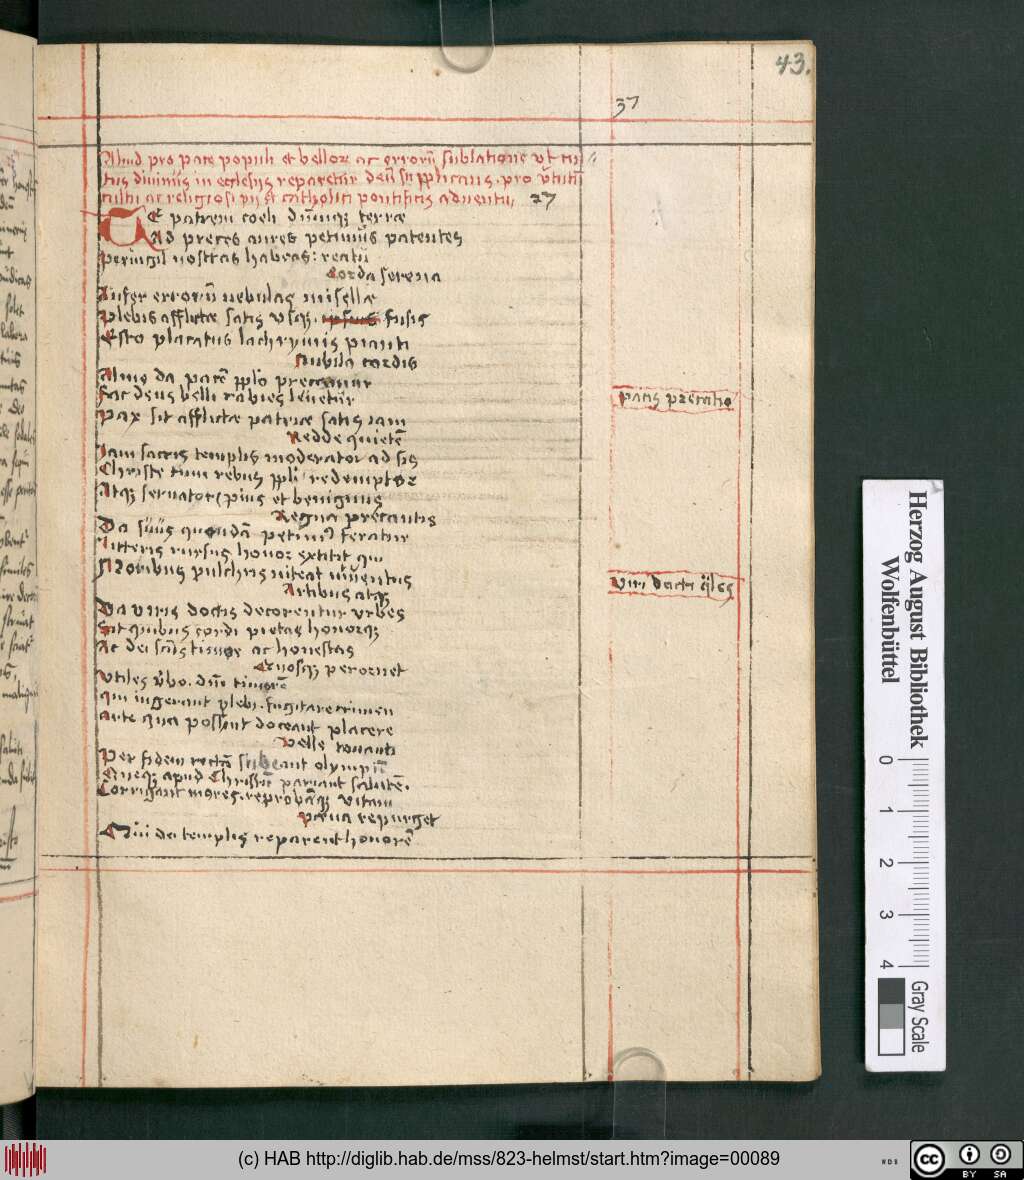 43.
37
Aliud pro pace populi et belloꝝ ac erroꝝ sublatione vt cul⸗
tus diuinus in ecclesijs reparetur deū supplicans. pro
cultu ac religiosi pij et catholici pontificis aduentu, 27
TE patrem coeli dn̄mqꝫ terrae
Ad preces aures petimus patentes
peruigil nostras habeas: reatū
Corda serena
Aufer errorū nebulas misellae
Plebis afflictae satis vsqꝫ. fusis
Esto placatus lachrymis pianti
Nubila cordis
Almę da pacē pplo precamur
Fac deus belli rabies leuetur
Pax sit afflictae patriae satis iam
Redde quietē
pacis precatio
Iam sacris templis moderator ad sis
Christe tum rebus ppli redemptor
Atqꝫ seruator pius et benignus
Regna precantis
Da suus quondā petimꝰ feratur
Litteris rursus honor extitit qui
Moribus pulchris niteat iuuentus
Artibus atqꝫ
Viri docti
Da viris doctis decorentur vrbes
Sint quibus cordi pietas honorqꝫ
Ac dei timor ac honestas
Quosqꝫ perornet
Vtiles vbo. dn̄i timorē
qui ingerant plebi. fugitare crimen
Arte qua possint doceant placere
Velle tonanti
Per fidem rectā subeant olympū
Quiqꝫ apud Christū pariant salutē.
Corrigant mores. reprobāqꝫ vitam
paena repurget
Qui dei templis reparent honorē
Herzog August Bibliothek
Wolfenbüttel
0 1 2 3 4
Gray Scale
(c) HAB http://diglib.hab.de/mss/823-helmst/start.htm?image=00089
WDB
CC BY SA